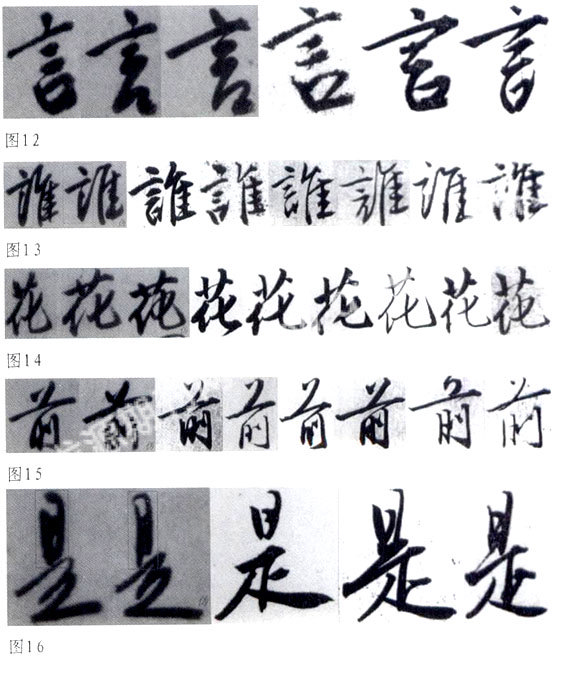 言言言言言言
图12
誰誰誰誰誰誰誰誰
图13
花花花花花花花花花
图14
前前前前前前前前
图15
是是是是是
图16